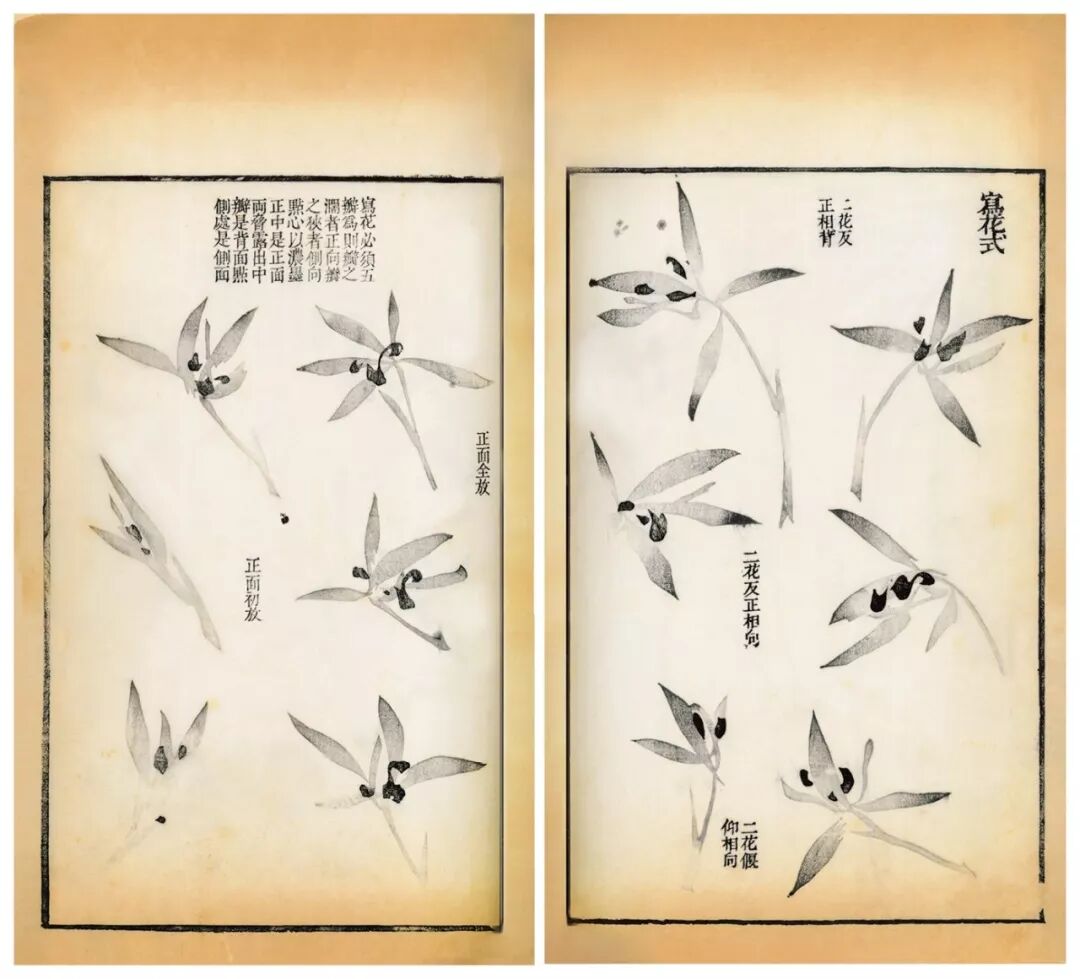 寫花式
二花反
正相背
二花反正相向
二花偃
仰相向
寫花必須五
瓣為則瓣之
濶者正向瓣
之狹者側向
點心以濃墨
正中是正面
兩脅露出中
瓣是背面點
側處是側面
正面全放
正面初放